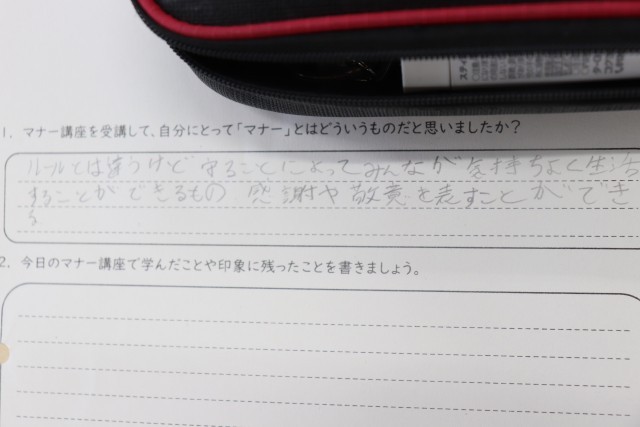 1. マナー講座を受講して、自分にとって「マナー」とはどういうものだと思いましたか?
ルールとは違うけど守ることによってみんなが気持ちよく生活
することができるもの 感謝や敬意を表すことができ
る
2. 今日のマナー講座で学んだことや印象に残ったことを書きましょう。